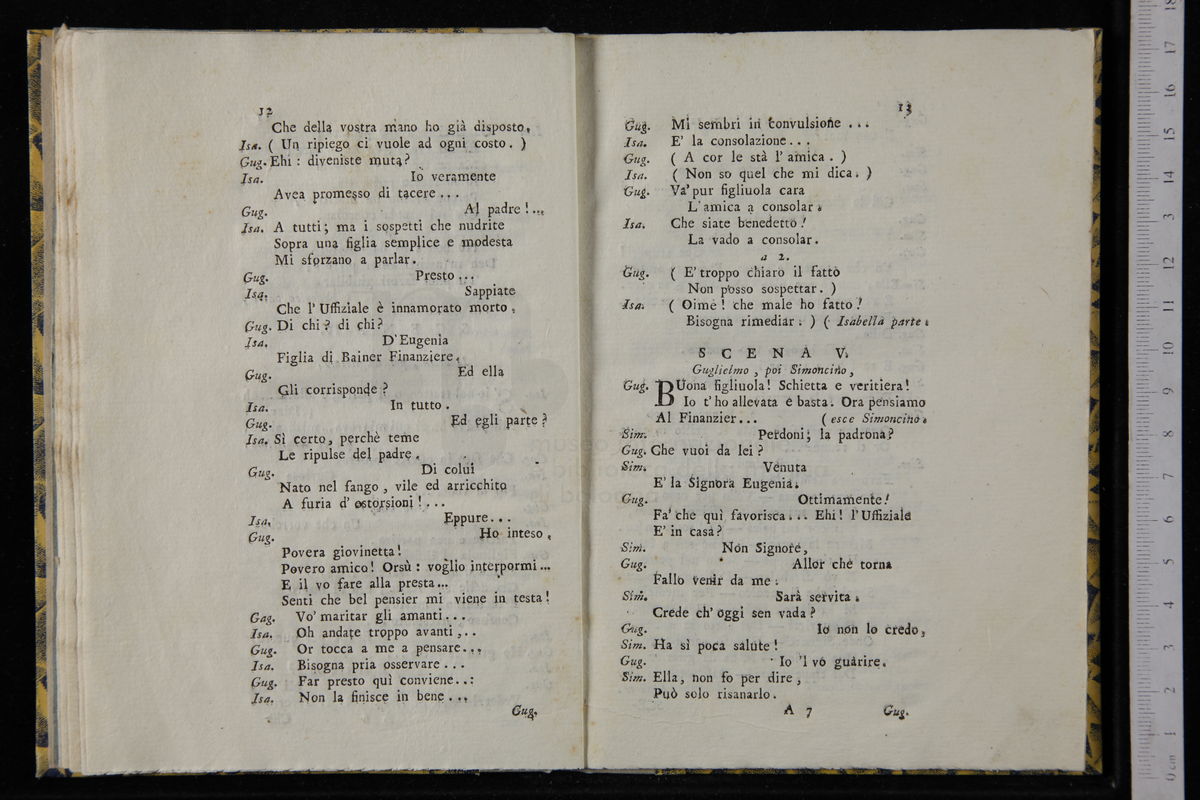 12
Che della vostra mano ho già disposto,
Isa. ( Un ripiego ci vuole ad ogni costo. )
Gug. Ehi : diveniste muta?
Isa. Io veramente
Avea promesso di tacere ...
Gug. Al padre ! ...
Isa. A tutti; ma i sospetti che nudrite
Sopra una figlia semplice e modesta
Mi sforzano a parlar.
Gug. Presto ...
Isa. Sappiate
Che l' Uffiziale è innamorato morto,
Gug. Di chi? di chi?
Isa. D'Eugenia
Figlia di Bainer Finanziere.
Gug. Ed ella
Gli corrisponde ?
Isa. In tutto.
Gug. Ed egli parte ?
Isa. Sì certo, perchè teme
Le ripulse del padre.
Gug. Di colui
Nato nel fango, vile ed arricchito
A furia d' estorsioni ! ...
Isa. Eppure...
Gug. Ho inteso,
Povera giovinetta!
Povero amico! Orsù : voglio interpormi ...
E il vo fare alla presta...
Senti che bel pensier mi viene in testa!
Gag. Vo' maritar gli amanti...
Isa. Oh andate troppo avanti ,..
Gug. Or tocca a me a pensare...
Isa. Bisogna pria osservare ...
Gug. Far presto quì conviene..:
Isa. Non la finisce in bene ...
Gug.
13
Gug. Mi sembri in convulsione ...
Isa. E' la consolazione...
Gug. ( A cor le stà l' amica . )
Isa. ( Non so quel che mi dica. )
Gug. Va' pur figliuola cara
L'amica a consolar.
Isa. Che siate benedetto !
La vado a consolar.
a 2.
Gug. ( E' troppo chiaro il fatto
Non posso sospettar. )
Isa. ( Oimè ! che male ho fatto !
Bisogna rimediar . ) ( Isabella parte.
SCENA V.
Guglielmo, poi Simoncino,
Gug. BUona figliuola! Schietta e veritiera!
Io t'ho allevata e basta. Ora pensiamo
Al Finanzier... ( esce Simoncino.
Sim. Perdoni; la padrona?
Gug. Che vuoi da lei ?
Sim. Venuta
E' la Signora Eugenia.
Gug. Ottimamente!
Fa' che quì favorisca... Ehi! l'Uffiziale
E' in casa?
Sim. Non Signore,
Gug. Allor chè torna
Fallo venir da me .
Sim. Sarà servita.
Crede ch' oggi sen vada?
Gug. Io non lo credo,
Sim. Ha sì poca salute !
Gug. Io 'l vo guarire.
Sim. Ella, non fo per dire,
Può solo risanarlo.
A 7 Gug.